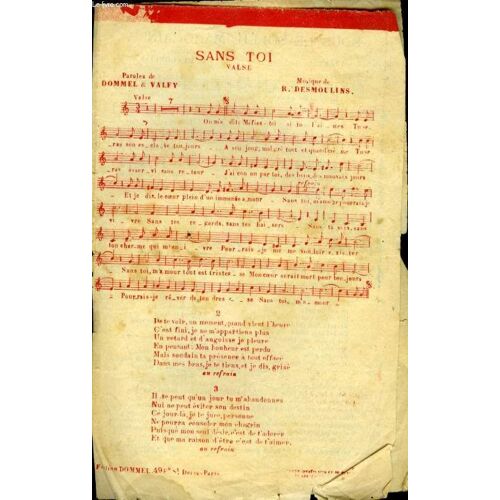 Le-livre.com
SANS TOI
VALSE
Paroles de
DOMMEL & VALFY
Musique de
R. DESMOULINS.
Valse
7
On m'a dit: Méfies-toi si tu l'ai - mes Tu se-
ras son es cla - ve tou jours
A son joug, malgré tout et quand mê me Tu se-
ras asser - vi sans re - tour J'ai con nu par toi, des bons, des mauvais jours
Et je dis, le cœur plein d'un immense a mour Sans toi, je ne pourrais
vivre Sans tes re - gards, sans tes bai - sers Sans ta voix, sans
ton char - me qui m'en - i - vre Pour - rais - je me vou loir e - xis ter
Sans toi, m'a mour tout est tristes - se Mon cœur serait mort pour tou jours
Pour rais - je rê - ver de ten dres - se Sans toi, m'a - mour
2
De te voir, un moment, quand vient l'heure
C'est fini, je ne m'appartiens plus
Un retard et d'angoisse je pleure
En pensant: Mon bonheur est perdu
Mais soudain ta présence a tout effacé
Dans mes bras, je te tiens, et je dis, grisé
au refrain
3
Il se peut qu'un jour tu m'abandonnes
Nul ne peut éviter son destin
Ce jour-là, je le jure, personne
Ne pourra consoler mon chagrin
Puisque mon seul désir, c'est de t'adorer
Et que ma raison d'être c'est de t'aimer.
au refrain
DOMMEL 49 Paris